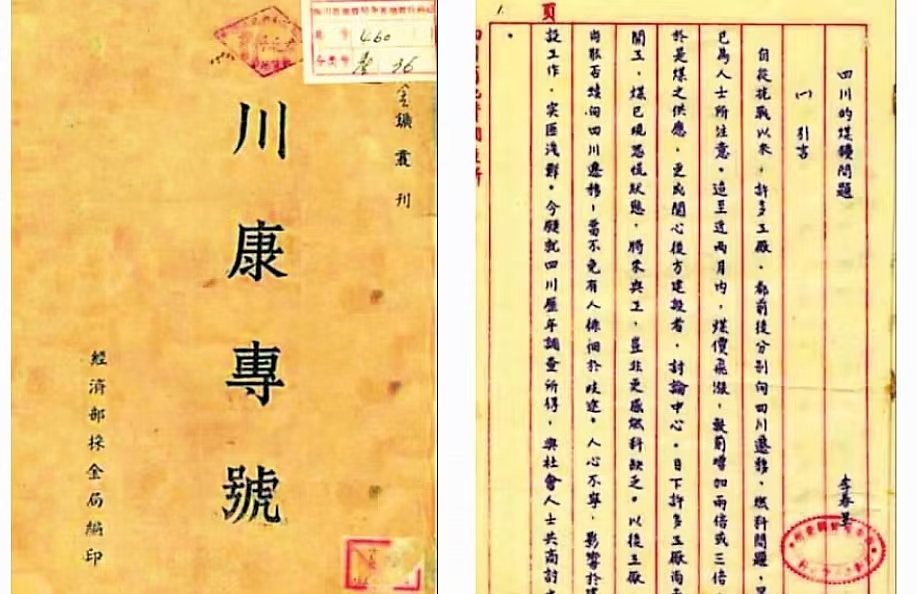 金鑛叢刊
川康專號
經濟部採金局編印
460
36
頁
四川的煤鑛問題
李春昱
(一) 引言
自從抗戰以來,許多工廠,都前後分別向四川遷移,燃料問題,
已為人士所注意。迨至近兩月內,煤價飛漲,較前增加兩倍或三倍
於是煤之供應,更成關心後方建設者,討論中心。目下許多工廠尚未
開工,煤已現恐慌狀態,將來興工,豈非更感燃料缺乏。以後工廠
尚能否續向四川遷移,當不免有人徘徊於歧途。人心不寧,影響於建
設工作,实匪淺鮮。今願就四川歷年調查所得,與社會人士共商討